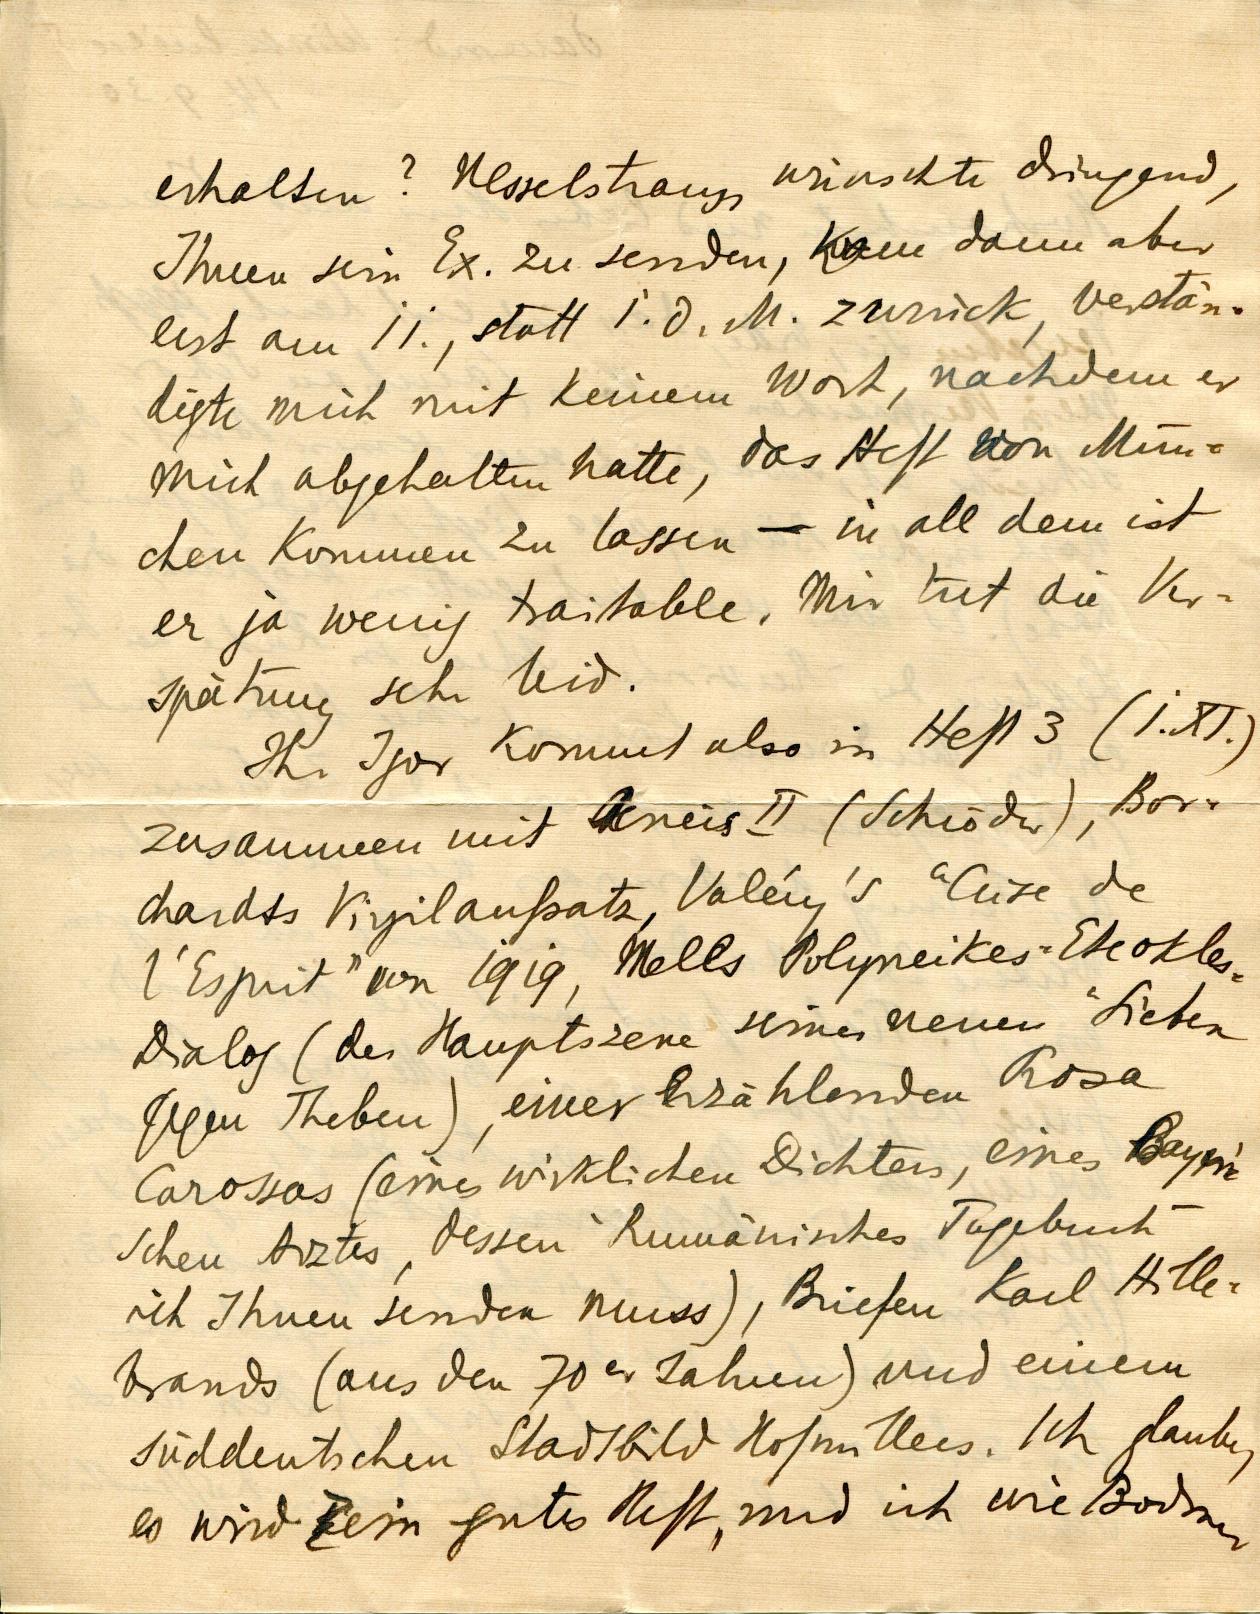 erhalten? Nesselstrauss wünschte dringend,
Ihnen sein Ex. zu senden, kam dann aber
erst am 11., statt 1. d. M. zurück, verstän-
digte mich mit keinem Wort, nachdem er
mich abgehalten hatte, das Heft von Mün-
chen kommen zu lassen — in all dem ist
er ja wenig traitable. Mir tut die Ver-
spätung sehr leid.
Ihr Igor kommt also in Heft 3 (1.XI.)
zusammen mit Aeneis II (Schröder), Bor-
chardts Virgilaufsatz, Valéry's "Crise de
l'Esprit" von 1919, Mells Polyneikes-Eteokles-
Dialog (der Hauptszene seiner neuen "Sieben
gegen Theben), einer erzählenden Prosa
Carossas (eines wirklichen Dichters, eines Bayri-
schen Arztes, dessen Rumänisches Tagebuch
ich Ihnen senden muss), Briefen Karl Hille-
brands (aus den 70er Jahren) und einem
süddeutschen Stadtbild Hofmillers. Ich glaube,
es wird ein gutes Heft, und ich wie Bodmer